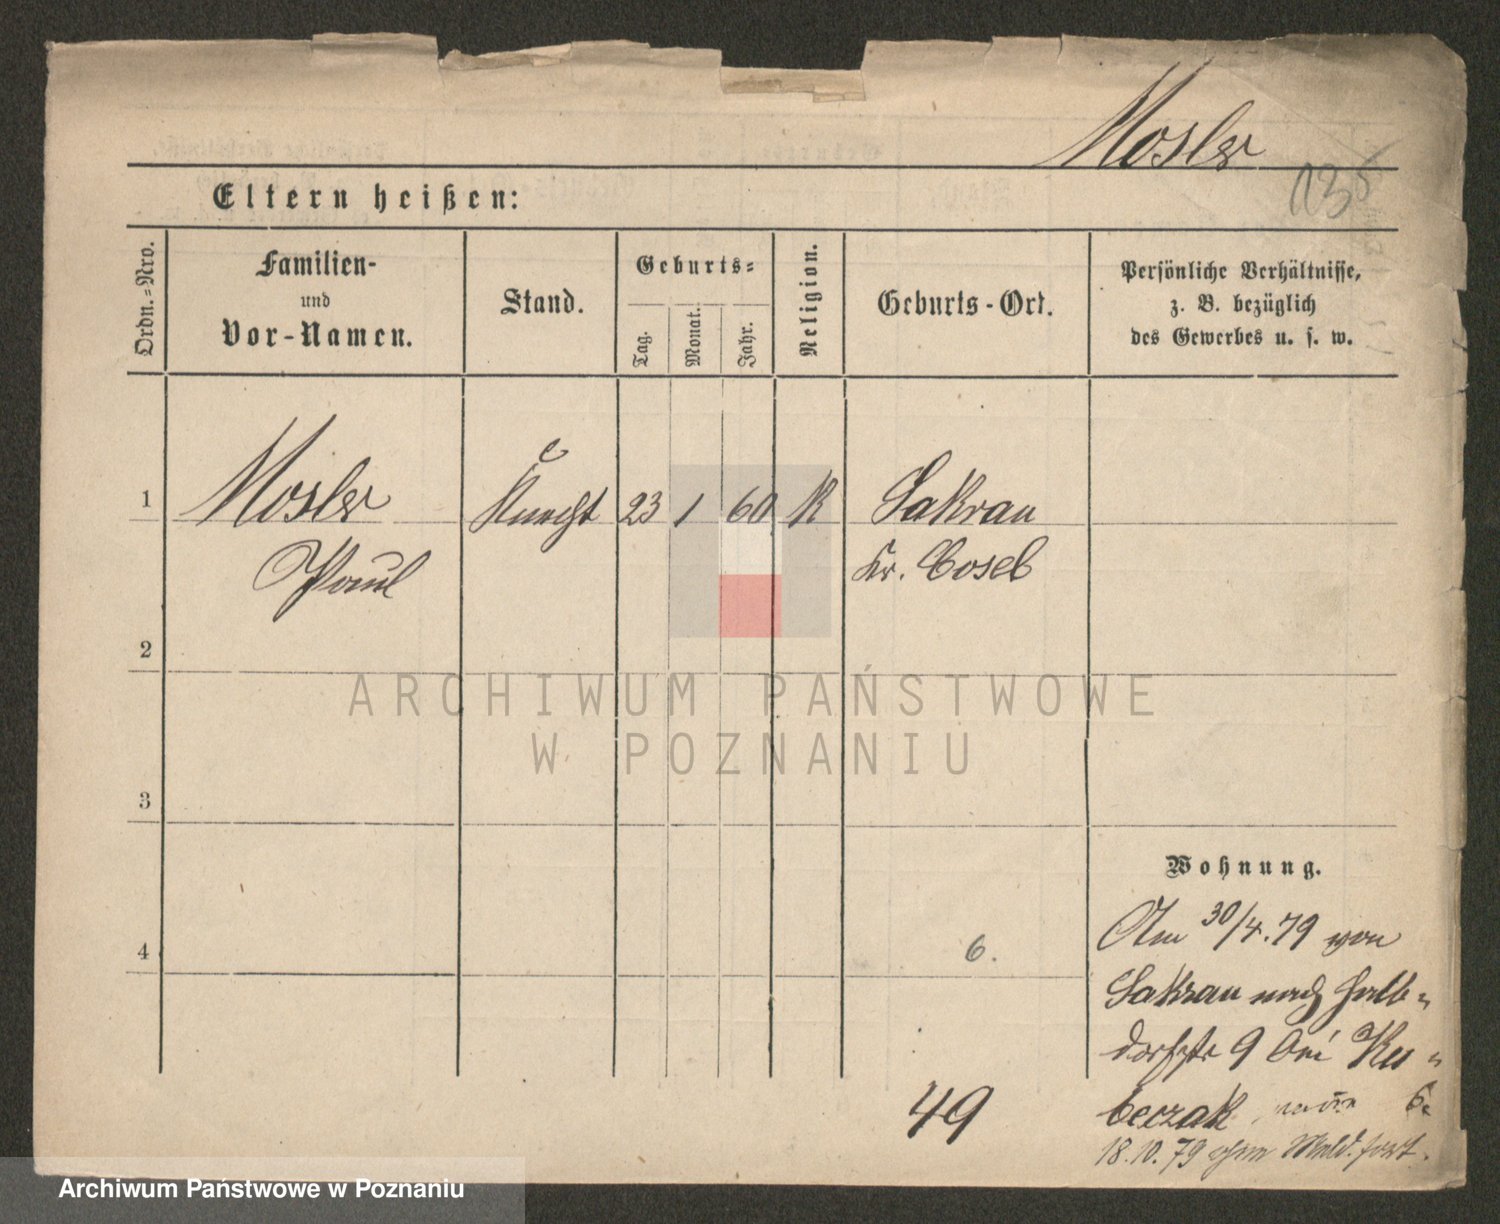 Mosler
135
Eltern heißen:
Ordn.-Nro.
Familien-
und
Vor-Namen.
Stand.
Geburts-
Tag.
Monat.
Jahr.
Religion.
Geburts-Ort.
Persönliche Verhältnisse,
z. B. bezüglich
des Gewerbes u. s. w.
1 Mosler Knecht 23 1 60 K Sakrau
Paul Kr. Cosel
2
3
4
6.
Wohnung.
Am 30/4.79 von
Sakrau nach Halb-
dorfstr 9 bei Ku-
beczak
18.10.79 ohne Meld. fort.
49
ARCHIWUM PAŃSTWOWE
W POZNANIU
Archiwum Państwowe w Poznaniu